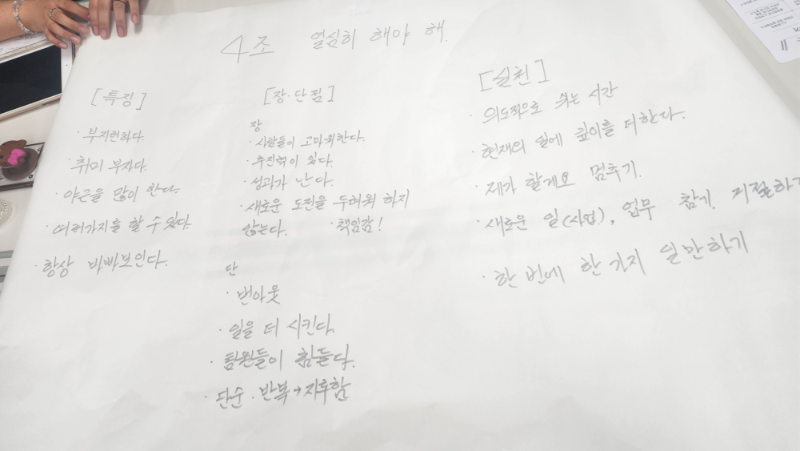 4조 열심히 해야 해.
[특징]
· 부지런하다.
· 취미 부자다.
· 야근을 많이 한다.
· 여러가지를 할 수 있다.
· 항상 바빠보인다.
[장·단점]
장
· 사람들이 고마워한다.
· 추진력이 있다.
· 성과가 난다.
· 새로운 도전을 두려워 하지
않는다. · 책임감!
단
· 번아웃
· 일을 더 시킨다.
· 팀원들이 힘들다.
· 단순·반복→지루함
[실천]
· 의도적으로 쉬는 시간
· 현재의 일에 깊이를 더한다.
· 제가 할게요 멈추기.
· 새로운 일(사업), 업무 참기. 거절하기
· 한 번에 한 가지 일만하기